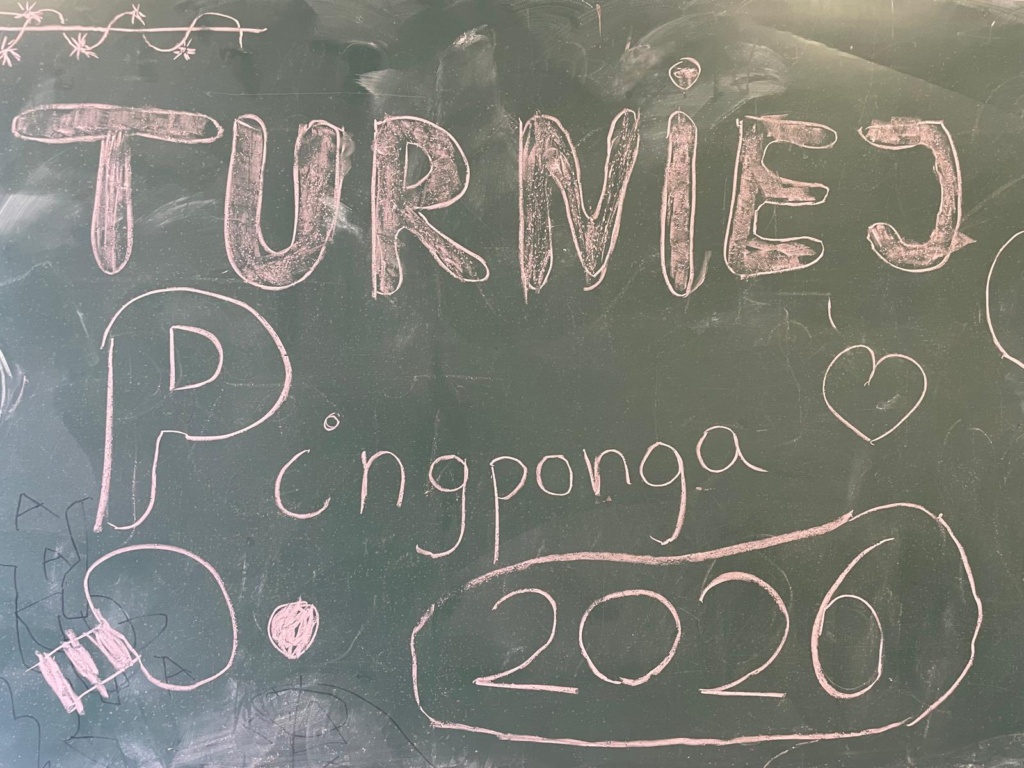 TURNIEJ
Pingponga
2026